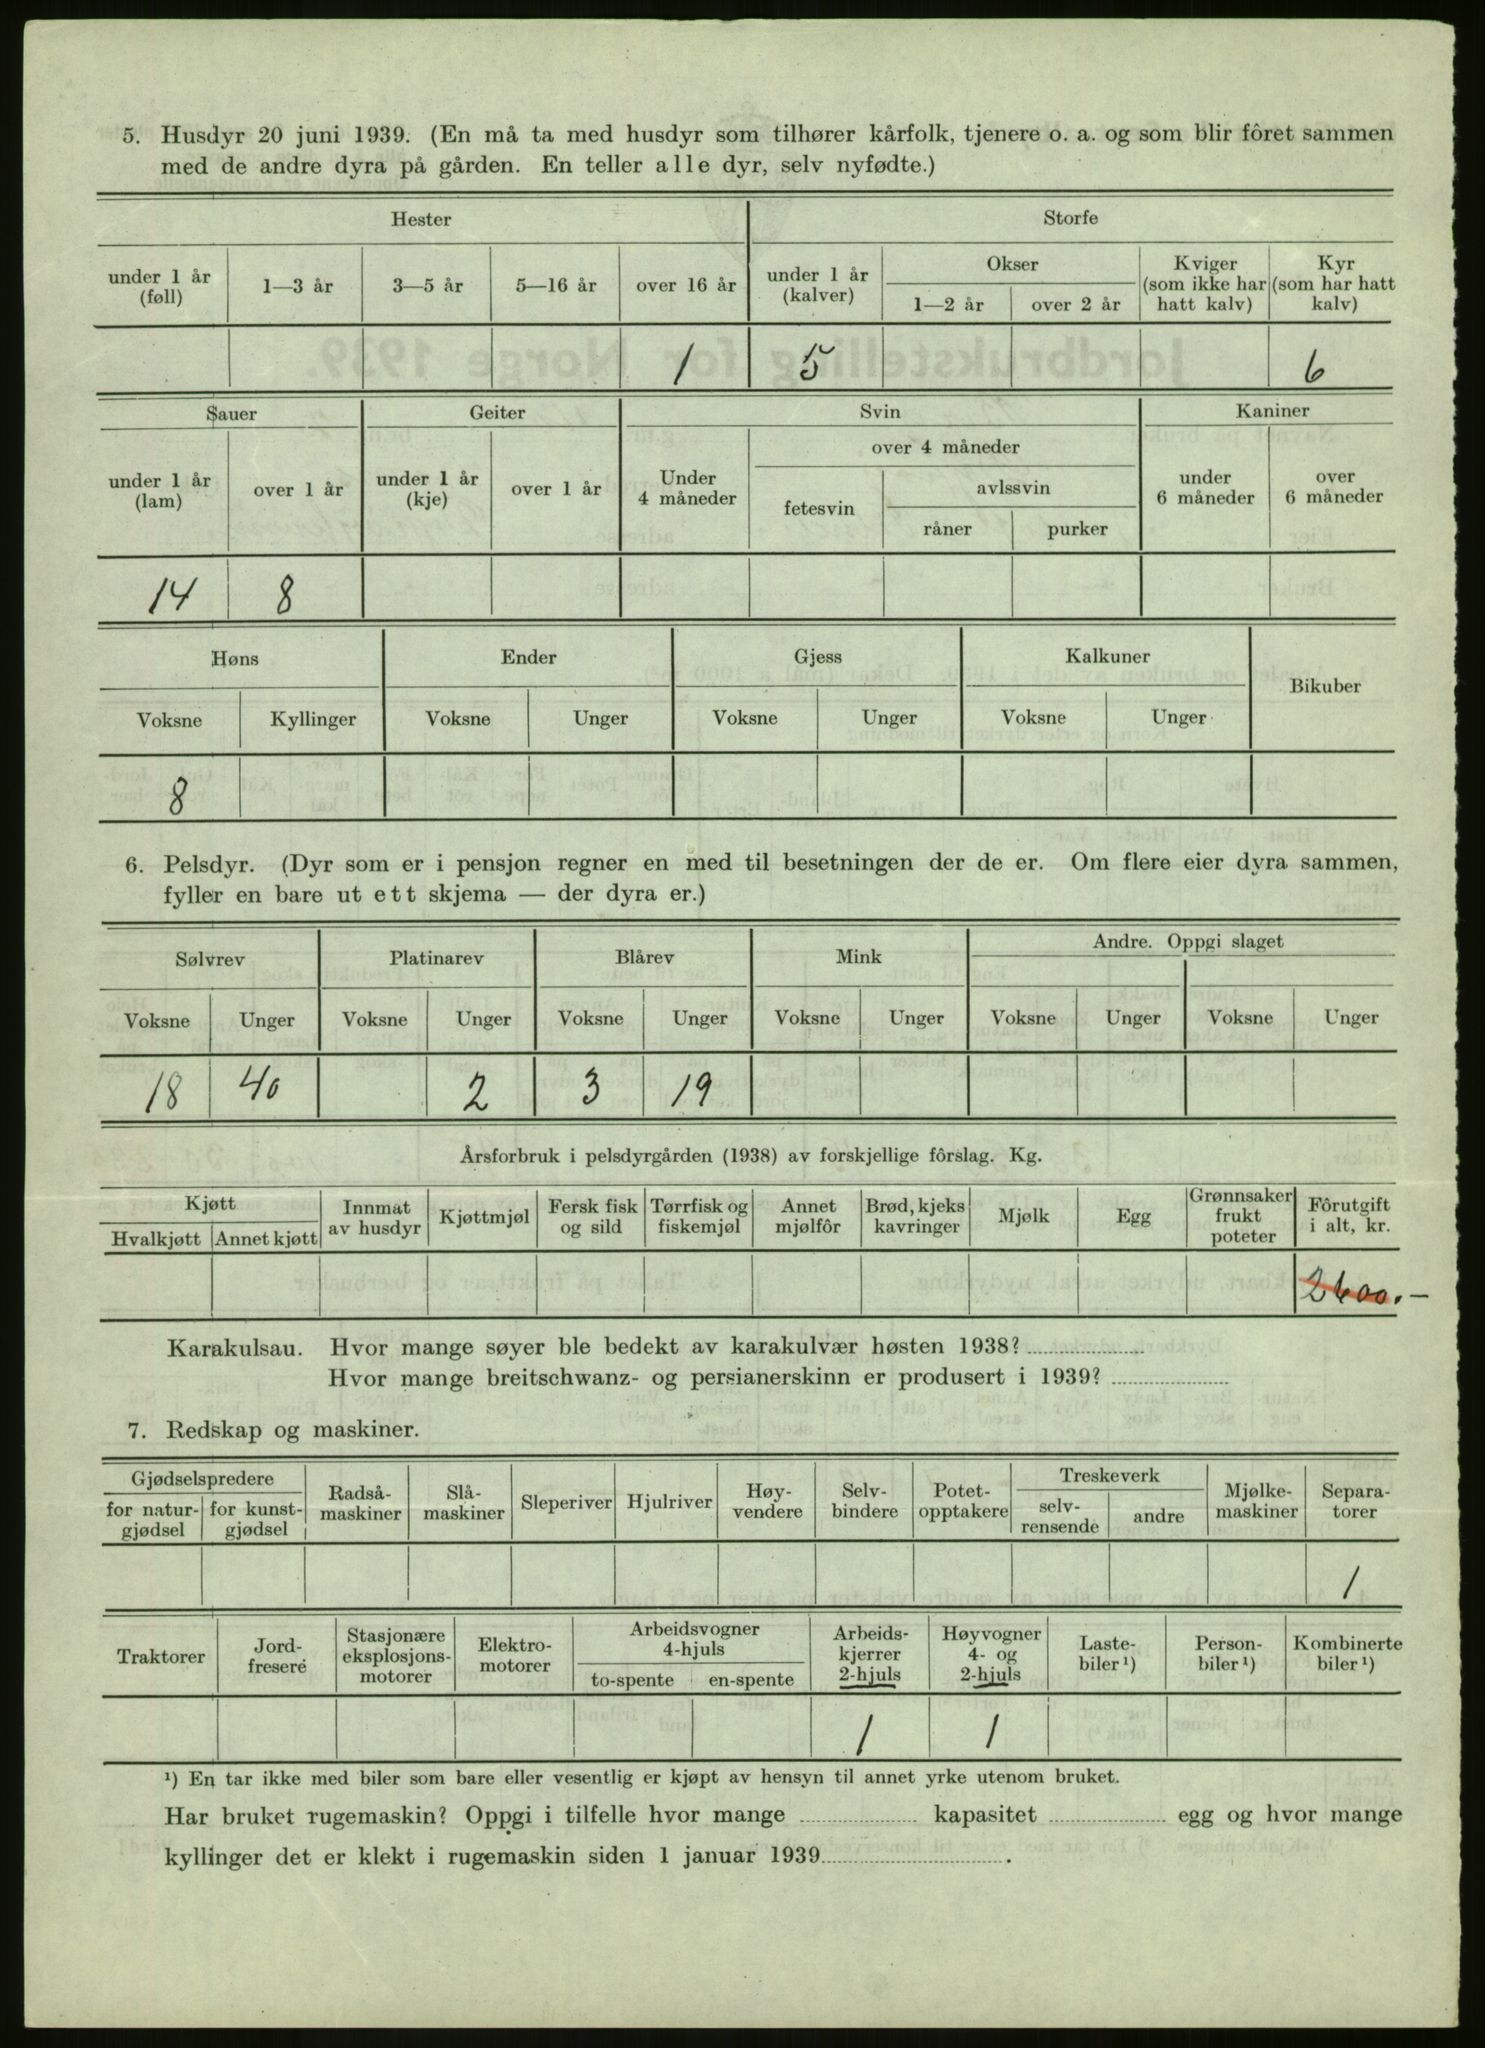 5. Husdyr 20 juni 1939. (En må ta med husdyr som tilhører kårfolk, tjenere o. a. og som blir fôret sammen
med de andre dyra på gården. En teller alle dyr, selv nyfødte.)
Hester Storfe
under 1 år (føll) 1—3 år 3—5 år 5—16 år over 16 år under 1 år (kalver) Okser 1—2 år over 2 år Kviger (som ikke har hatt kalv) Kyr (som har hatt kalv)
1 5 6
Sauer Geiter Svin Kaniner
under 1 år (lam) over 1 år under 1 år (kje) over 1 år Under 4 måneder over 4 måneder fetesvin avlssvin råner purker under 6 måneder over 6 måneder
14 8
Høns Ender Gjess Kalkuner Bikuber
Voksne Kyllinger Voksne Unger Voksne Unger Voksne Unger
8
6. Pelsdyr. (Dyr som er i pensjon regner en med til besetningen der de er. Om flere eier dyra sammen,
fyller en bare ut ett skjema — der dyra er.)
Sølvrev Platinarev Blårev Mink Andre. Oppgi slaget
Voksne Unger Voksne Unger Voksne Unger Voksne Unger Voksne Unger Voksne Unger
18 40 2 3 19
Årsforbruk i pelsdyrgården (1938) av forskjellige fôrslag. Kg.
Kjøtt Hvalkjøtt Annet kjøtt Innmat av husdyr Kjøttmjøl Fersk fisk og sild Tørrfisk og fiskemjøl Annet mjølfôr Brød, kjeks kavringer Mjølk Egg Grønnsaker frukt poteter Fôrutgift i alt, kr.
2600.—
Karakulsau. Hvor mange søyer ble bedekt av karakulvær høsten 1938?
Hvor mange breitschwanz- og persianerskinn er produsert i 1939?
7. Redskap og maskiner.
Gjødselspredere for natur-gjødsel for kunst-gjødsel Radså-maskiner Slå-maskiner Sleperiver Hjulriver Høy-vendere Selv-bindere Potet-opptakere Treskeverk selv-rensende andre Mjølke-maskiner Separa-torer
1
Traktorer Jord-fresere Stasjonære eksplosjons-motorer Elektro-motorer Arbeidsvogner 4-hjuls to-spente en-spente Arbeids-kjerrer 2-hjuls Høyvogner 4- og 2-hjuls Laste-biler ¹) Person-biler ¹) Kombinerte biler ¹)
1 1
¹) En tar ikke med biler som bare eller vesentlig er kjøpt av hensyn til annet yrke utenom bruket.
Har bruket rugemaskin? Oppgi i tilfelle hvor mange kapasitet egg og hvor mange
kyllinger det er klekt i rugemaskin siden 1 januar 1939 .